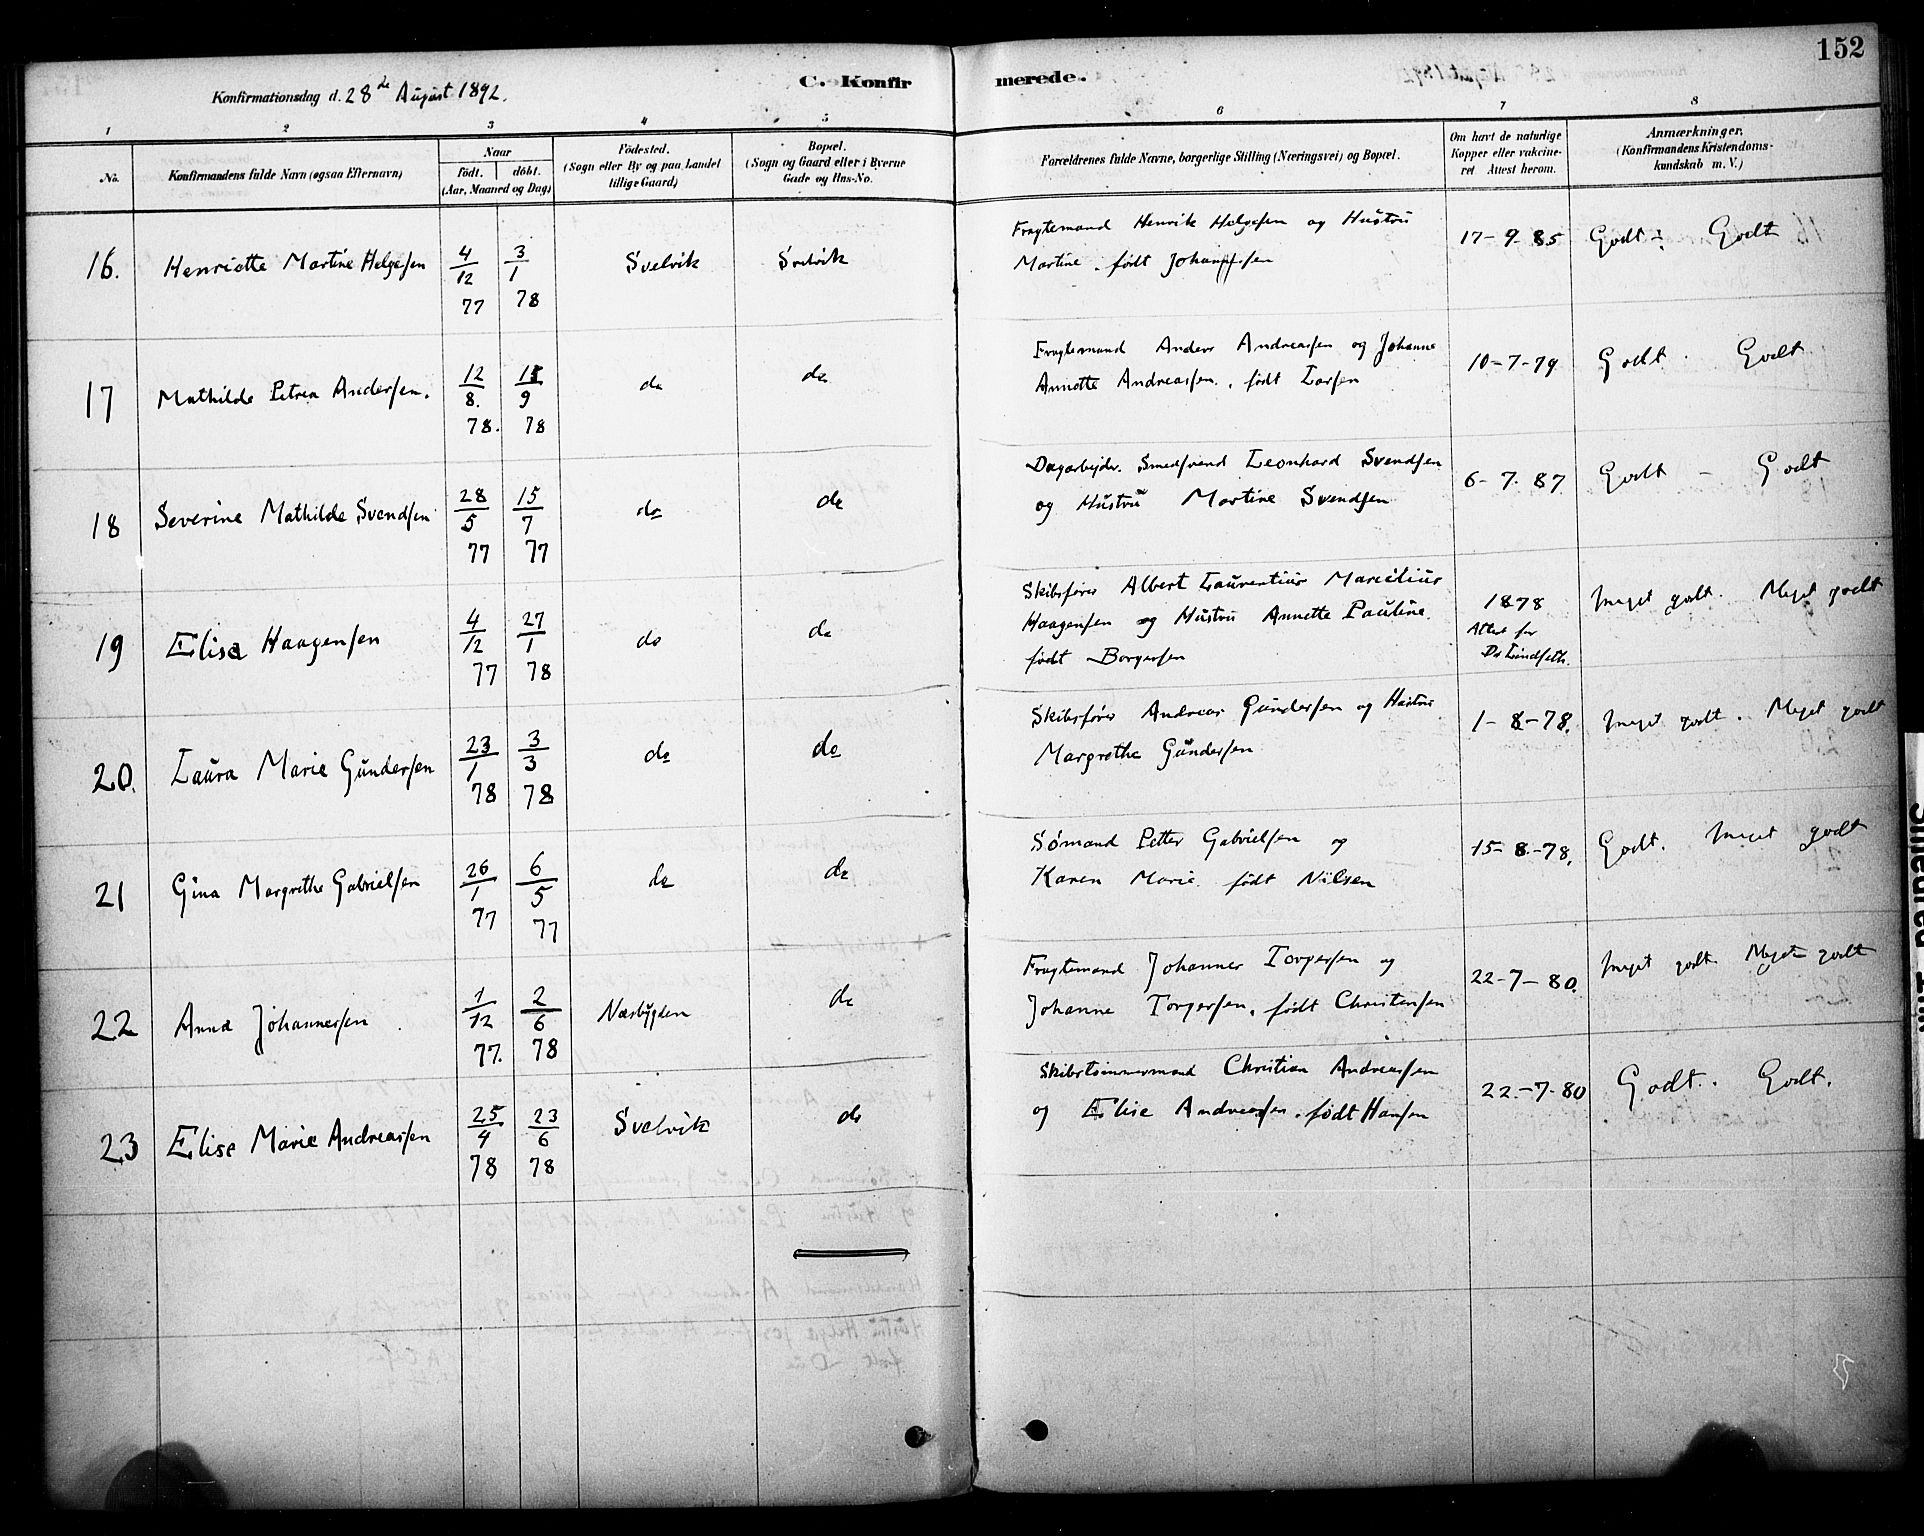 152
Konfirmationsdag d. 28de August 1892.
C. Konfirmerede.
1 2 3 4 5 6 7 8
No. Konfirmandens fulde Navn (ogsaa Efternavn) Naar født. døbt. (Aar, Maaned og Dag) Fødested. (Sogn eller By og paa Landet tillige Gaard) Bopæl. (Sogn og Gaard eller i Byerne Gade og Hus-No. Forældrenes fulde Navne, borgerlige Stilling (Næringsvei) og Bopæl. Om havt de naturlige Kopper eller vakcineret Attest herom. Anmærkninger. (Konfirmandens Kristendomskundskab m. V.)
16. Henriette Martine Helgesen 4/12 77 3/1 78 Svelvik Svelvik Fragtemand Henrik Helgesen og Hustru
Martine. født Johannesen 17-9-85 Godt - Godt
17 Mathilde Petrea Andersen. 12/8. 78. 15/9 78 do do Fragtemand Anders Andreassen og Johanne
Annette Andreassen., født Larsen 10-7-79 Godt. Godt
18 Severine Mathilde Svendsen 28/5 77 15/7 77 do do Dagarbejder. Smedsvend Leonhard Svendsen
og Hustru Martine Svendsen 6-7-87 Godt - Godt
19 Elisa Haagensen 4/12 77 27/1 78 do do Skibsfører Albert Laurentius Marcelius
Haagensen og Hustru Annette Pauline.
født Borgersen 1878
Attest for
Dr Lindseth. meget godt. Meget godt
20. Laura Marie Gundersen 23/1 78 3/3 78 do do Skibsfører Andreas Gundersen og Hustru
Margrethe Gundersen 1-8-78. meget godt. Meget godt
21 Gina Margrethe Gabrielsen 26/1 77 6/5 77 do do Sømand Petter Gabrielsen og
Karen Marie. født Nilsen 15-8-78. Godt. meget godt
22 Anna Johannessen 1/12 77. 2/6 78 Næsbygden do Fragtemand Johannes Torgersen og
Johanne Torgersen, født Christensen 22-7-80. meget godt. Meget godt
23 Elise Marie Andreassen 25/4 78 23/6 78 Svelvik do Skibstømmermand Christian Andreassen
og Elise Andreassen. født Hansen 22-7-80 Godt.. Godt.